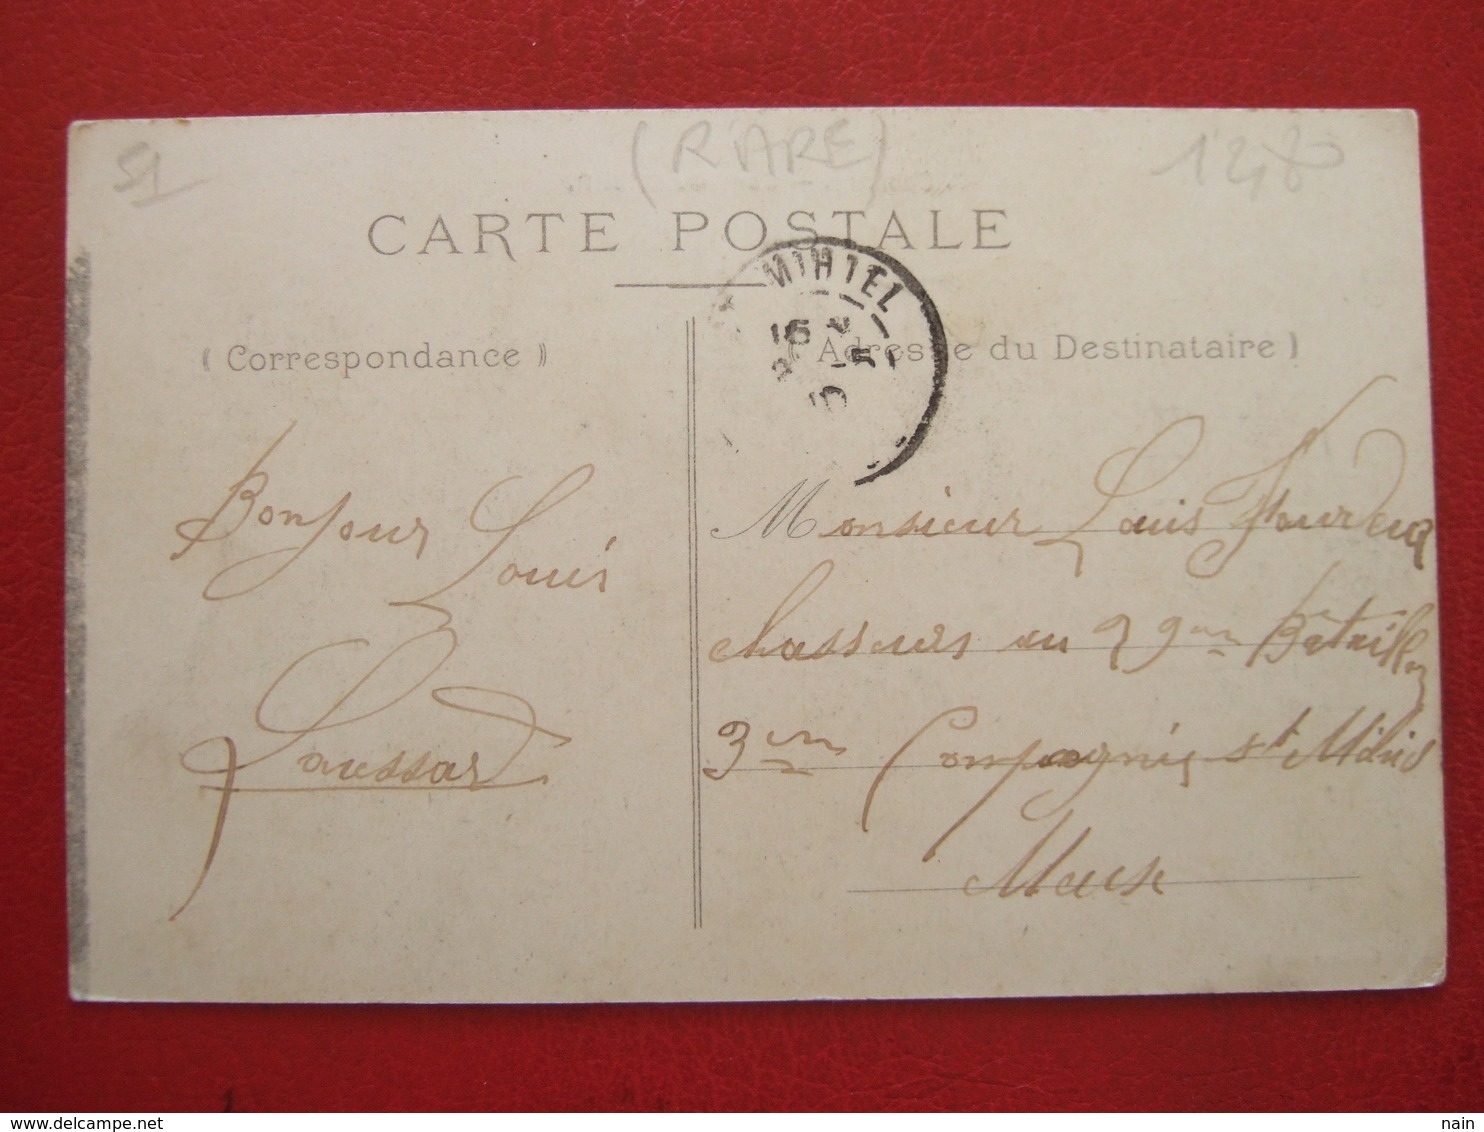 51
(RARE)
CARTE POSTALE
MIHIEL
(Correspondance)
(Adresse du Destinataire)
Bonjour Louis
Monsieur Louis
chasseurs au 29em Bataillon
3em Compagnie St Mihiel
Meuse
nain
www.delcampe.net